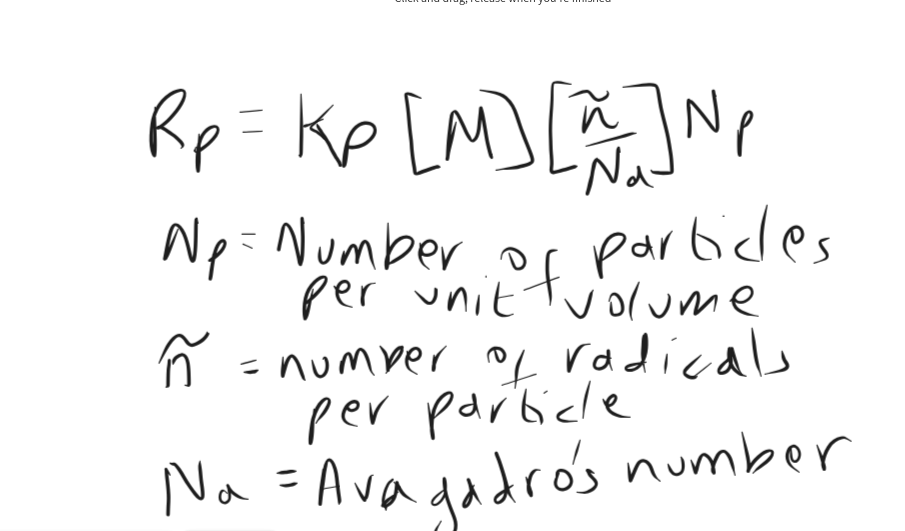 Click and drag, release when you're finished
Rp = Kp [M] [ñ/Na] Np
Np = Number of particles
per unit volume
ñ = number of radicals
per particle
Na = Avagadro's number